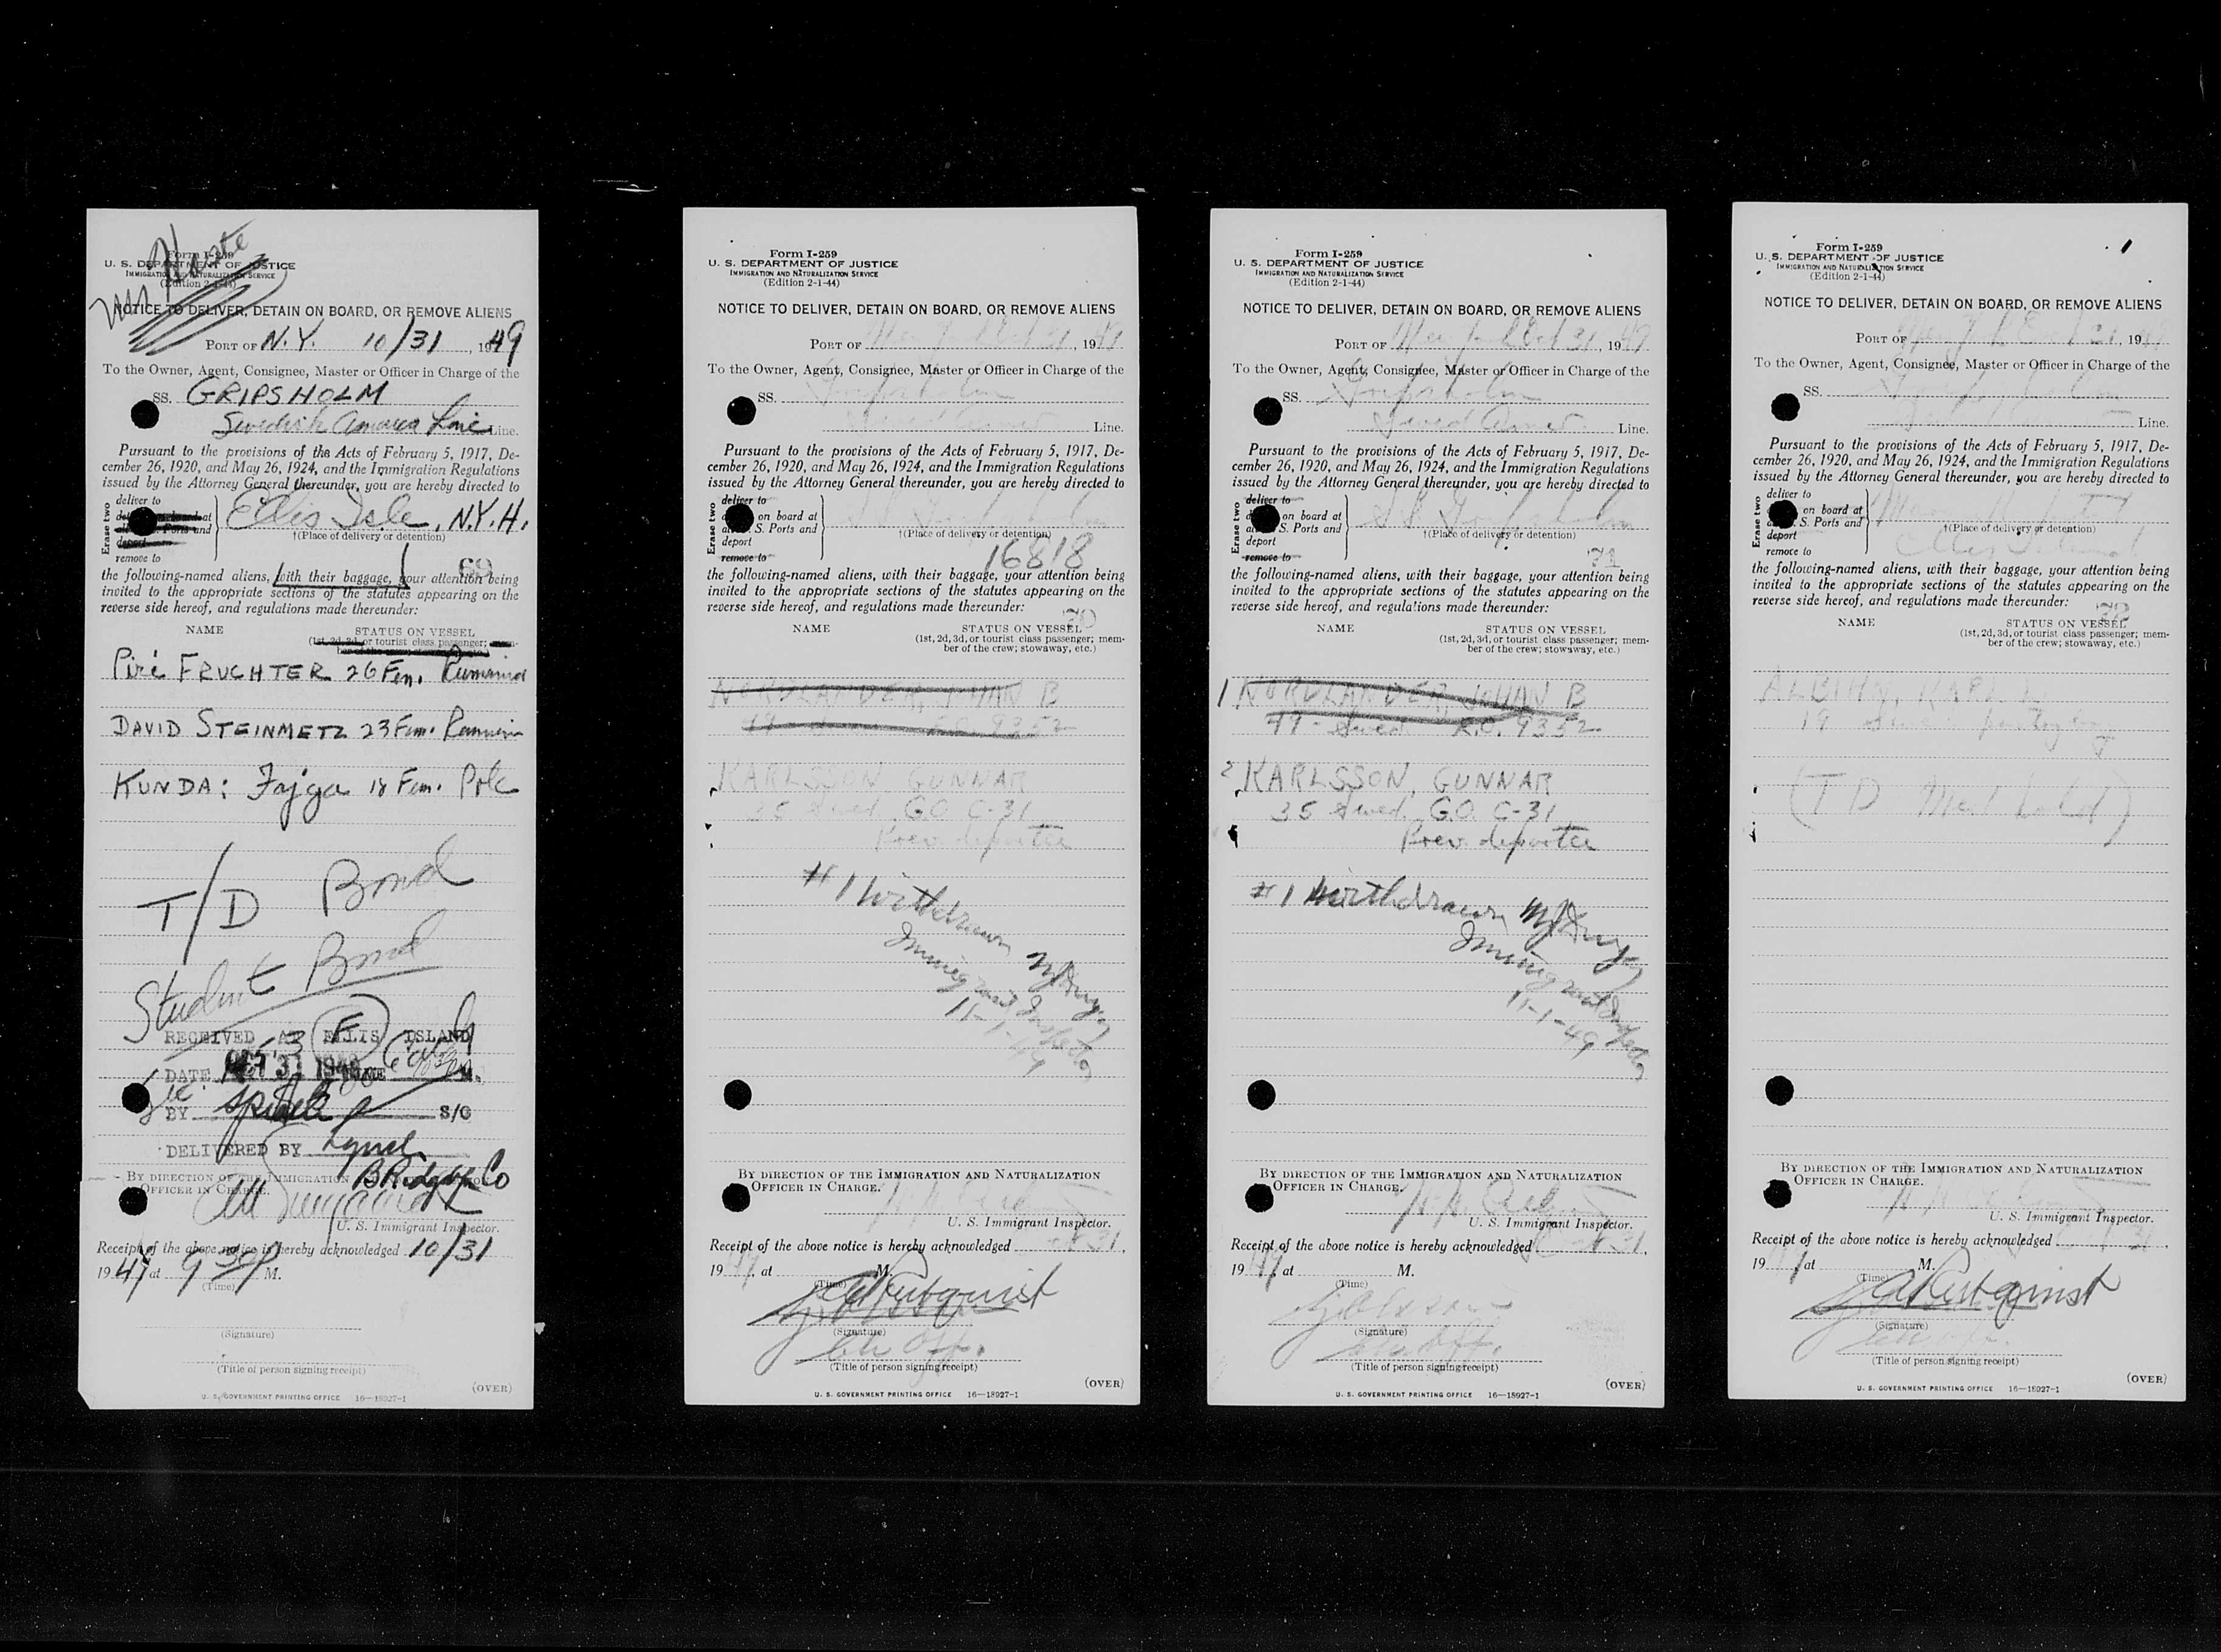 Form I-259
U. S. DEPARTMENT OF JUSTICE
IMMIGRATION AND NATURALIZATION SERVICE
(Edition 2-1-44)
NOTICE TO DELIVER, DETAIN ON BOARD, OR REMOVE ALIENS
PORT OF N.Y. 10/31, 1949
To the Owner, Agent, Consignee, Master or Officer in Charge of the
SS. GRIPSHOLM
Swedish America Line Line.
Pursuant to the provisions of the Acts of February 5, 1917, De-
cember 26, 1920, and May 26, 1924, and the Immigration Regulations
issued by the Attorney General thereunder, you are hereby directed to
Erase two
deliver to
at
Ports and
deport
remove to
Ellis Isle, N.Y.H.
†(Place of delivery or detention)
69
the following-named aliens, with their baggage, your attention being
invited to the appropriate sections of the statutes appearing on the
reverse side hereof, and regulations made thereunder:
NAME STATUS ON VESSEL
(1st, 2d, 3d, or tourist class passenger; mem-
ber of the crew; stowaway, etc.)
Piri FRUCHTER 26 Fem.
DAVID STEINMETZ 23 Fem.
KUNDA: Fajga 18 Fem. Pole
T/D Bond
Student Bond
RECEIVED AT ELLIS ISLAND
DATE OCT 31 1949 M.
BY S/G
DELIVERED BY Lynch
BY DIRECTION OF IMMIGRATION
OFFICER IN CHARGE.
U. S. Immigrant Inspector.
Receipt of the above notice is hereby acknowledged 10/31
1949 at 9 30 P M.
(Time)
(Signature)
(Title of person signing receipt)
(OVER)
U. S. GOVERNMENT PRINTING OFFICE 16—18927-1
Form I-259
U. S. DEPARTMENT OF JUSTICE
IMMIGRATION AND NATURALIZATION SERVICE
(Edition 2-1-44)
NOTICE TO DELIVER, DETAIN ON BOARD, OR REMOVE ALIENS
PORT OF New York Oct 31, 1949
To the Owner, Agent, Consignee, Master or Officer in Charge of the
SS. Gripsholm
Swed Amer Line.
Pursuant to the provisions of the Acts of February 5, 1917, De-
cember 26, 1920, and May 26, 1924, and the Immigration Regulations
issued by the Attorney General thereunder, you are hereby directed to
Erase two
deliver to
on board at
S. Ports and
deport
remove to
†(Place of delivery or detention)
16818
the following-named aliens, with their baggage, your attention being
invited to the appropriate sections of the statutes appearing on the
reverse side hereof, and regulations made thereunder:
70
NAME STATUS ON VESSEL
(1st, 2d, 3d, or tourist class passenger; mem-
ber of the crew; stowaway, etc.)
NORDLANDER, JOHAN B
49 9352
KARLSSON, GUNNAR
35 Swed. G.O. C-31
Prev. deportee
#1 Withdrawn
Immigrant Inspector
11-1-49
BY DIRECTION OF THE IMMIGRATION AND NATURALIZATION
OFFICER IN CHARGE.
U. S. Immigrant Inspector.
Receipt of the above notice is hereby acknowledged Oct 31,
1949, at M.
(Time)
(Signature)
Ch Off.
(Title of person signing receipt)
(OVER)
U. S. GOVERNMENT PRINTING OFFICE 16—18927-1
Form I-259
U. S. DEPARTMENT OF JUSTICE
IMMIGRATION AND NATURALIZATION SERVICE
(Edition 2-1-44)
NOTICE TO DELIVER, DETAIN ON BOARD, OR REMOVE ALIENS
PORT OF New York Oct 31, 1949
To the Owner, Agent, Consignee, Master or Officer in Charge of the
SS. Gripsholm
Swed Amer. Line.
Pursuant to the provisions of the Acts of February 5, 1917, De-
cember 26, 1920, and May 26, 1924, and the Immigration Regulations
issued by the Attorney General thereunder, you are hereby directed to
Erase two
deliver to
on board at
S. Ports and
deport
remove to
SS Gripsholm
†(Place of delivery or detention)
71
the following-named aliens, with their baggage, your attention being
invited to the appropriate sections of the statutes appearing on the
reverse side hereof, and regulations made thereunder:
NAME STATUS ON VESSEL
(1st, 2d, 3d, or tourist class passenger; mem-
ber of the crew; stowaway, etc.)
1 NORDLANDER, JOHAN B
49 - Swed. R.O. 9352
2 KARLSSON, GUNNAR
35 Swed. G.O. C-31
Prev. deportee
#1 Withdrawn
Immigrant Inspector
11-1-49
BY DIRECTION OF THE IMMIGRATION AND NATURALIZATION
OFFICER IN CHARGE.
U. S. Immigrant Inspector.
Receipt of the above notice is hereby acknowledged Oct 31,
1949, at M.
(Time)
(Signature)
Ch Off.
(Title of person signing receipt)
(OVER)
U. S. GOVERNMENT PRINTING OFFICE 16—18927-1
Form I-259
U. S. DEPARTMENT OF JUSTICE
IMMIGRATION AND NATURALIZATION SERVICE
(Edition 2-1-44)
NOTICE TO DELIVER, DETAIN ON BOARD, OR REMOVE ALIENS
PORT OF New York Oct 31, 1949
To the Owner, Agent, Consignee, Master or Officer in Charge of the
SS. Gripsholm
Line.
Pursuant to the provisions of the Acts of February 5, 1917, De-
cember 26, 1920, and May 26, 1924, and the Immigration Regulations
issued by the Attorney General thereunder, you are hereby directed to
Erase two
deliver to
on board at
S. Ports and
deport
remove to
†(Place of delivery or detention)
Ellis Island
the following-named aliens, with their baggage, your attention being
invited to the appropriate sections of the statutes appearing on the
reverse side hereof, and regulations made thereunder:
72
NAME STATUS ON VESSEL
(1st, 2d, 3d, or tourist class passenger; mem-
ber of the crew; stowaway, etc.)
ALBIHN, KARL
19
(TD Med hold)
BY DIRECTION OF THE IMMIGRATION AND NATURALIZATION
OFFICER IN CHARGE.
U. S. Immigrant Inspector.
Receipt of the above notice is hereby acknowledged Oct 31,
1949 at M.
(Time)
(Signature)
(Title of person signing receipt)
(OVER)
U. S. GOVERNMENT PRINTING OFFICE 16—18927-1